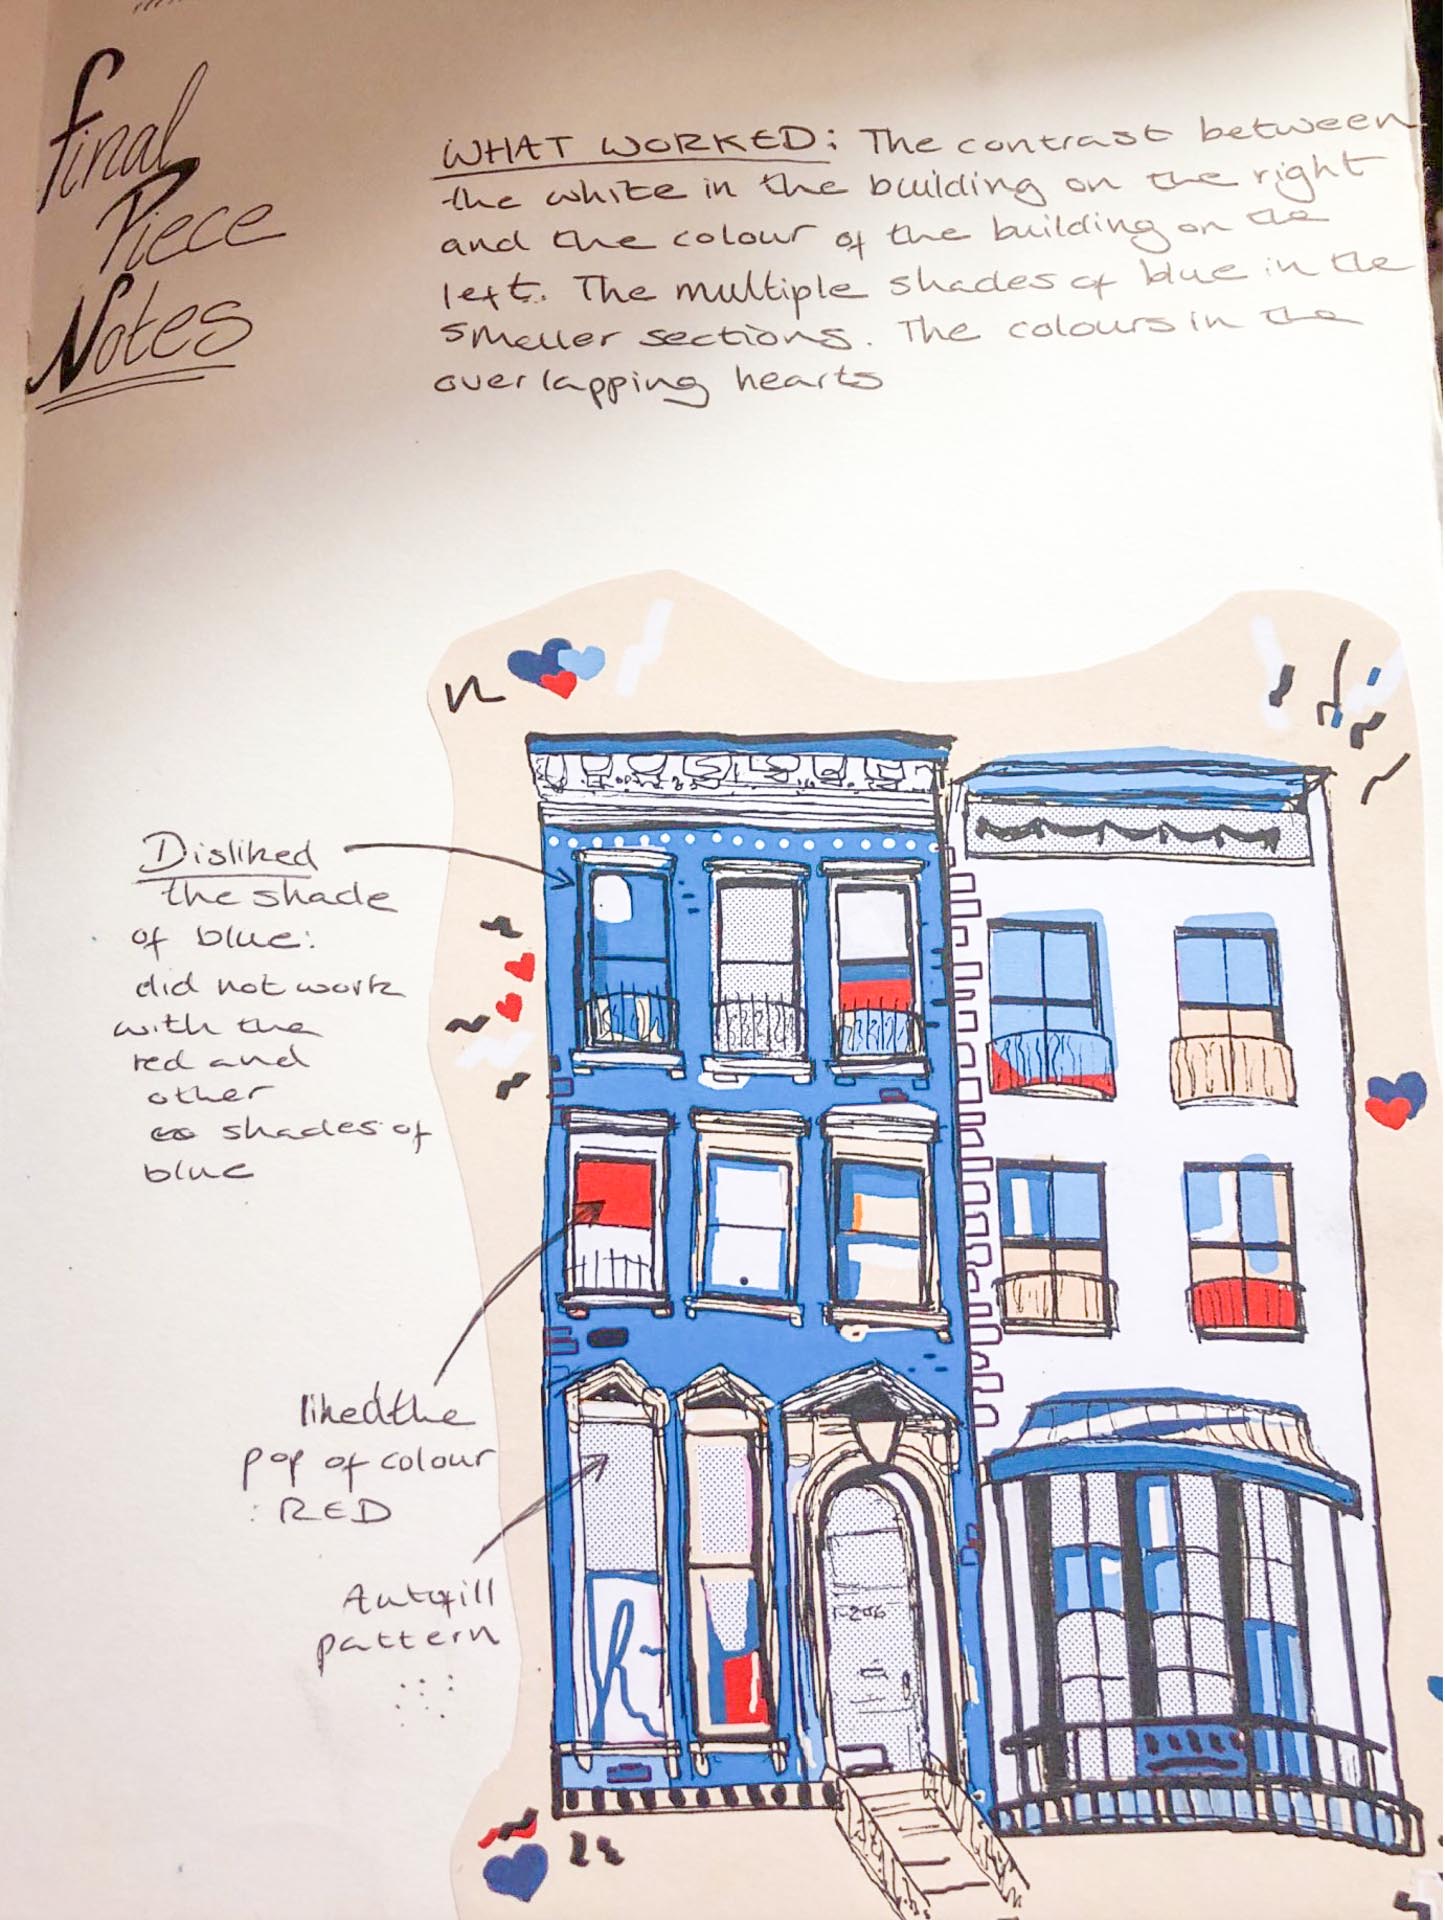 Final
Piece
Notes
WHAT WORKED: The contrast between
the white in the building on the right
and the colour of the building on the
left. The multiple shades of blue in the
smaller sections. The colours in the
overlapping hearts
Disliked
the shade
of blue:
did not work
with the
red and
other
shades of
blue
liked the
pop of colour
: RED
Autofill
pattern
206